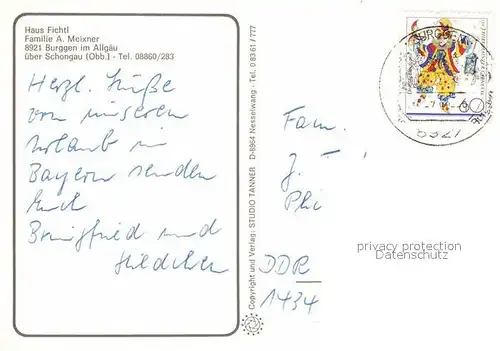 Haus Fichtl
Familie A. Meixner
8921 Burggen im Allgäu
über Schongau (Obb.) - Tel. 08860/283
Herzl. Grüße
von unserem
Urlaub in
Bayern senden
Euch
und
Copyright und Verlag: STUDIO TANNER D-8964 Nesselwang - Tel. 08361/777
Fam.
J. -
Phi
DDR
1434
BURGGEN
8921
privacy protection
Datenschutz